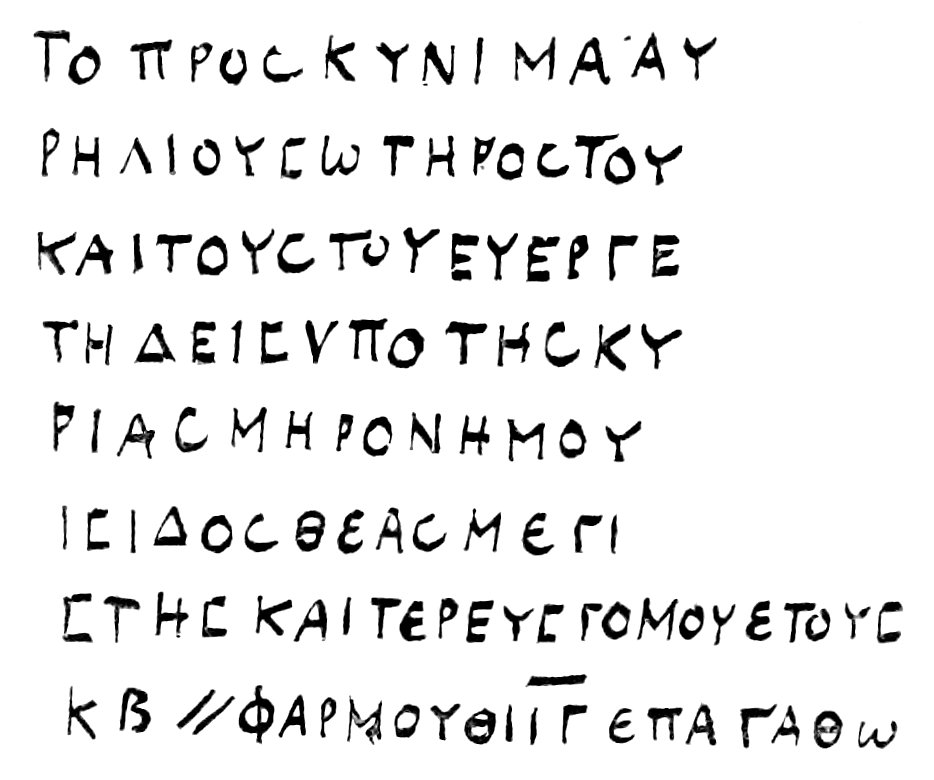 ΤΟ ΠΡΟϹΚΥΝΙΜΑ ΑΥ
ΡΗΛΙΟΥϹΩΤΗΡΟϹΤΟΥ
ΚΑΙΤΟΥϹΤΟΥΕΥΕΡΓΕ
ΤΗΔΕΙϹVΠΟΤΗϹΚΥ
ΡΙΑϹΜΗΡΟΝΗΜΟΥ
ΙϹΙΔΟϹΘΕΑϹΜΕΓΙ
ϹΤΗϹΚΑΙΤΕΡΕΥϹΓΟΜΟΥΕΤΟΥϹ
ΚΒ//ΦΑΡΜΟΥΘΙΙ̅Γ̅ΕΠΑΓΑΘΩ